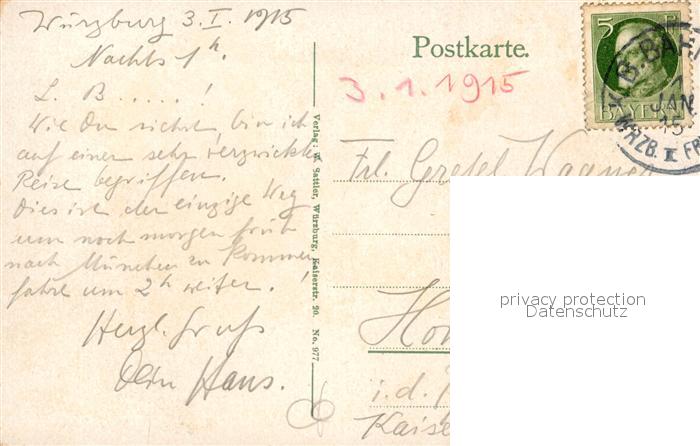 Würzburg 3. I. 1915
Nachts 1h.
L. B.....!
Wie Du siehst, bin ich
auf einer sehr verzwickten
Reise begriffen.
Dies ist der einzige Weg
um noch morgen früh
nach München zu kommen,
fahre um 2h weiter!
Herzl. Gruß
Dein Hans.
Verlag: W. Sattler, Würzburg, Kaiserstr. 20. No. 977
Postkarte.
3.1.1915
5 PF
BAYERN
B. BAH
JAN
15
WRZB. II FR
Frl. Gretel Wagner
i. d.
Kaise
privacy protection
Datenschutz